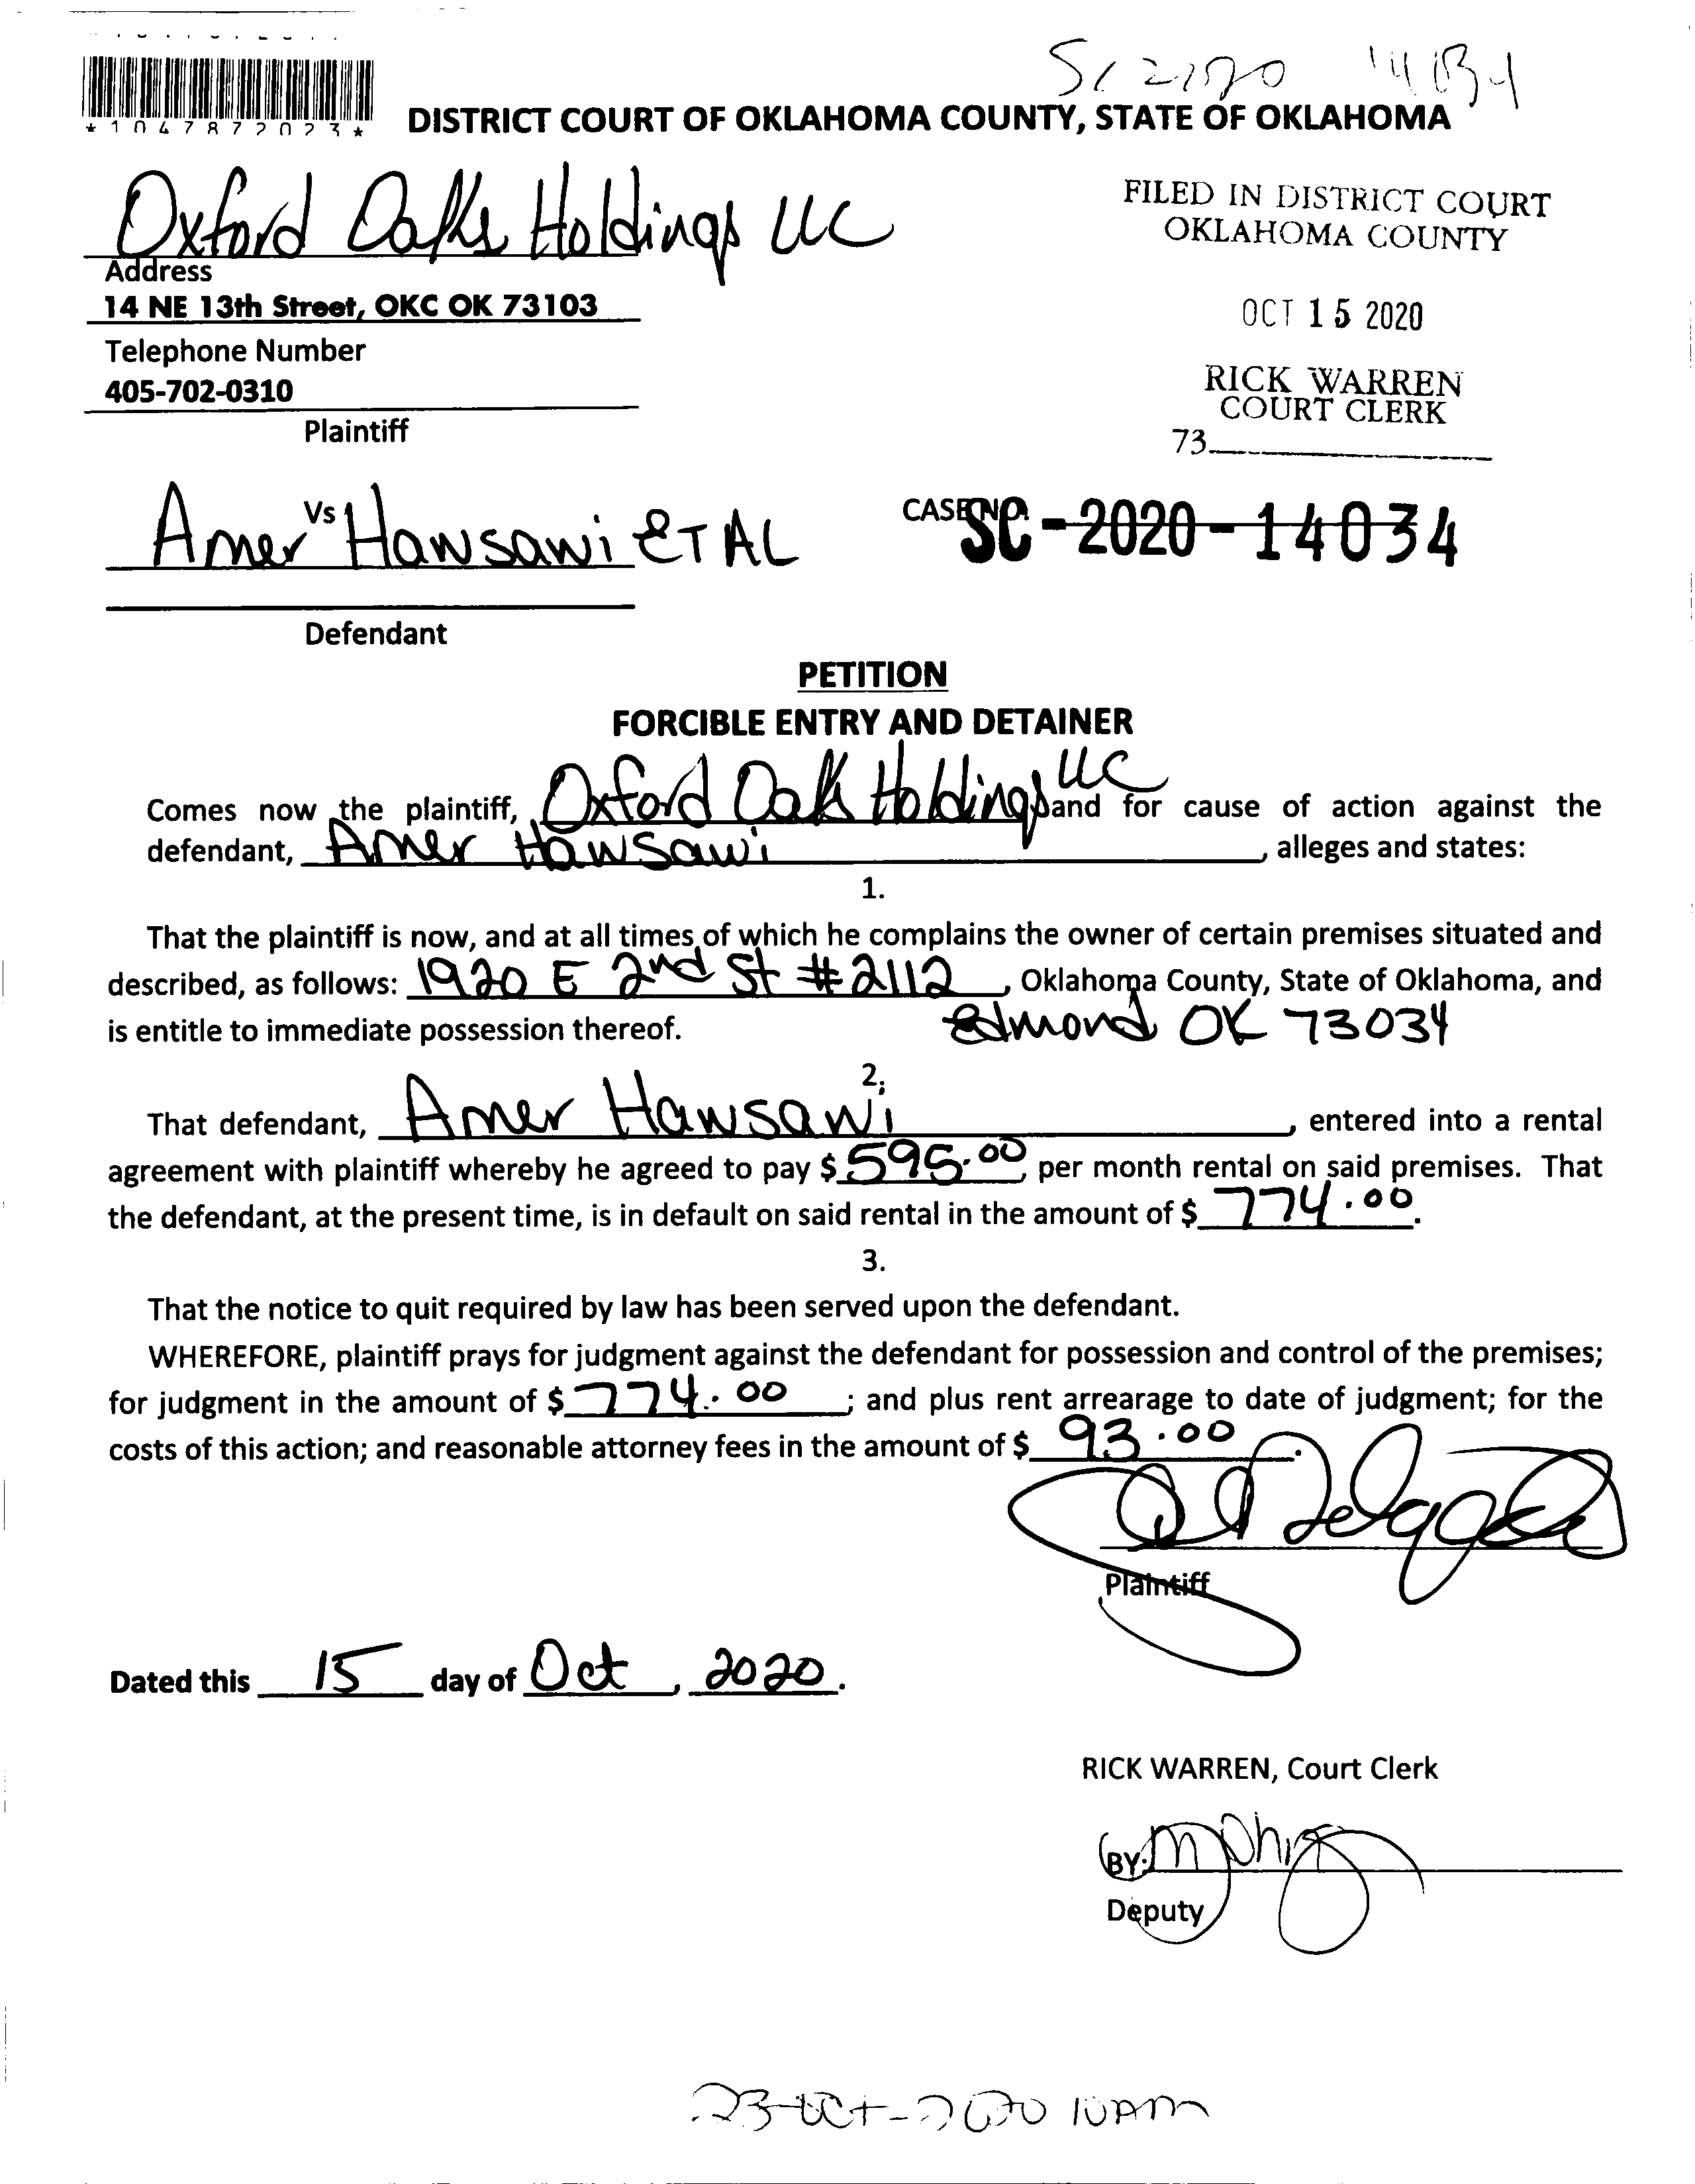 *1047872023*
DISTRICT COURT OF OKLAHOMA COUNTY, STATE OF OKLAHOMA
Oxford Oaks Holdings LLC
Address
14 NE 13th Street, OKC OK 73103
Telephone Number
405-702-0310
Plaintiff
FILED IN DISTRICT COURT
OKLAHOMA COUNTY
OCT 15 2020
RICK WARREN
COURT CLERK
73
Vs
Amer Hawsawi ET AL
CASE NO.
SC-2020-14034
Defendant
PETITION
FORCIBLE ENTRY AND DETAINER
Comes now the plaintiff, Oxford Oaks Holdings LLC and for cause of action against the
defendant, Amer Hawsawi, alleges and states:
1.
That the plaintiff is now, and at all times of which he complains the owner of certain premises situated and
described, as follows: 1920 E 2nd St #2112, Oklahoma County, State of Oklahoma, and
is entitle to immediate possession thereof. Edmond OK 73034
2.
That defendant, Amer Hawsawi, entered into a rental
agreement with plaintiff whereby he agreed to pay $595.00 per month rental on said premises. That
the defendant, at the present time, is in default on said rental in the amount of $774.00.
3.
That the notice to quit required by law has been served upon the defendant.
WHEREFORE, plaintiff prays for judgment against the defendant for possession and control of the premises;
for judgment in the amount of $774.00; and plus rent arrearage to date of judgment; for the
costs of this action; and reasonable attorney fees in the amount of $93.00.
Plaintiff
Dated this 15 day of Oct, 2020.
RICK WARREN, Court Clerk
BY:
Deputy
23-Oct-2020 10AM